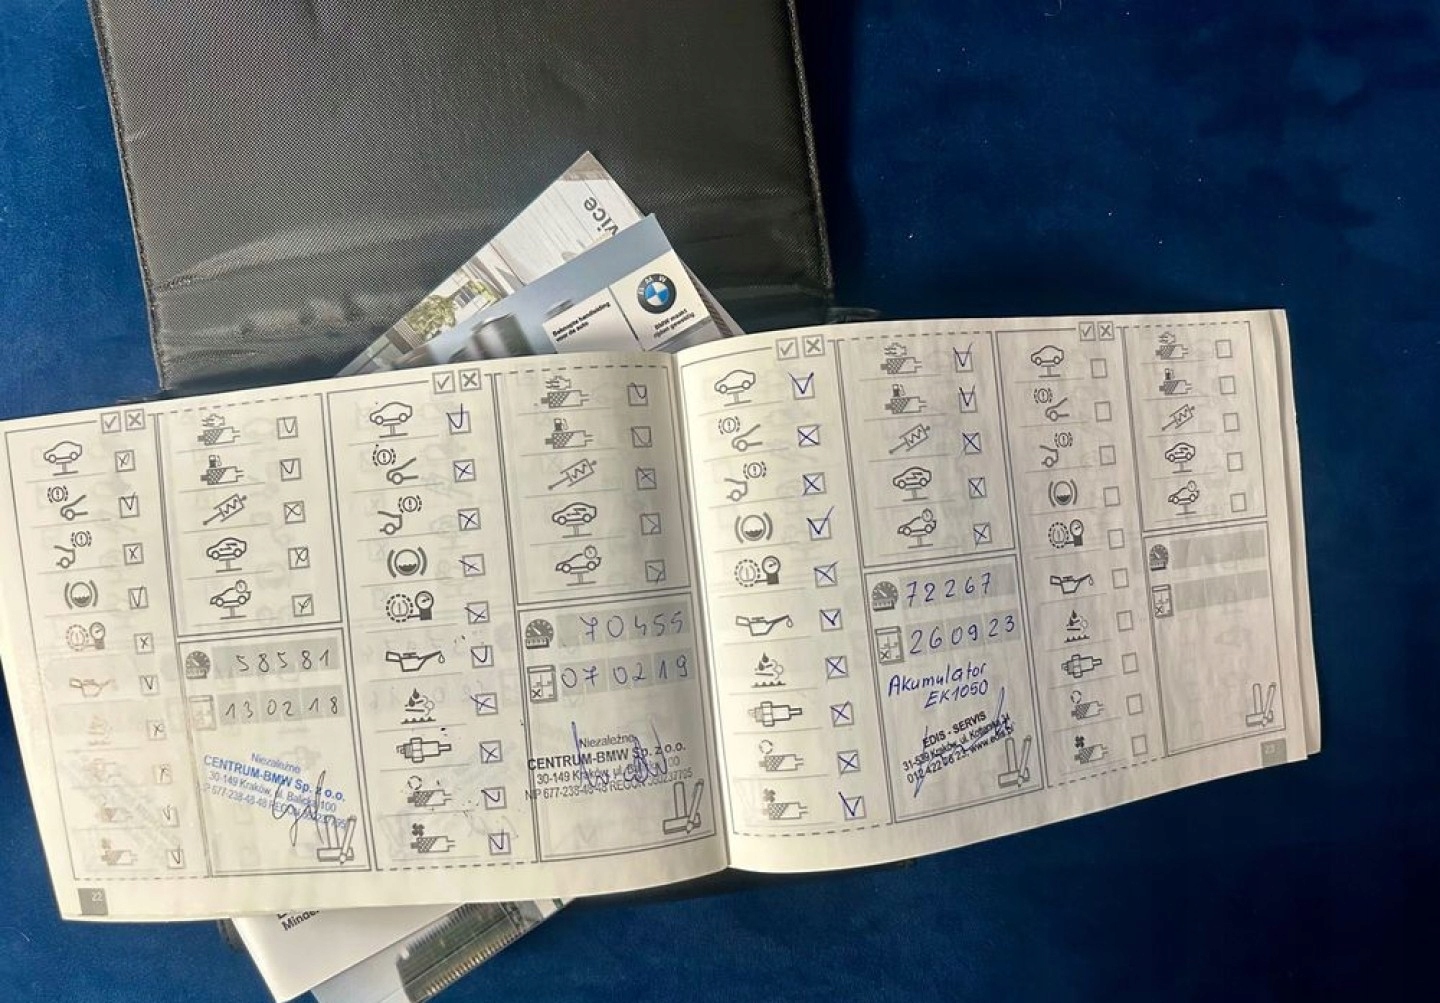 vice
BMW
Beknopte handleiding
voor de auto
BMW maakt
rijden geweldig
58581
130218
Niezależne
CENTRUM-BMW Sp. z o.o.
30-149 Kraków, ul. Balicka 100
P 677-238-48-48 REGON
22
70455
070219
Niezależne
CENTRUM-BMW Sp. z o.o.
30-149 Kraków, ul.
NIP 677-238-48-48 REGON
72267
260923
Akumulator
EK1050
EDIS - SERVIS
Kraków, ul.
www.edis.pl
23
Minder